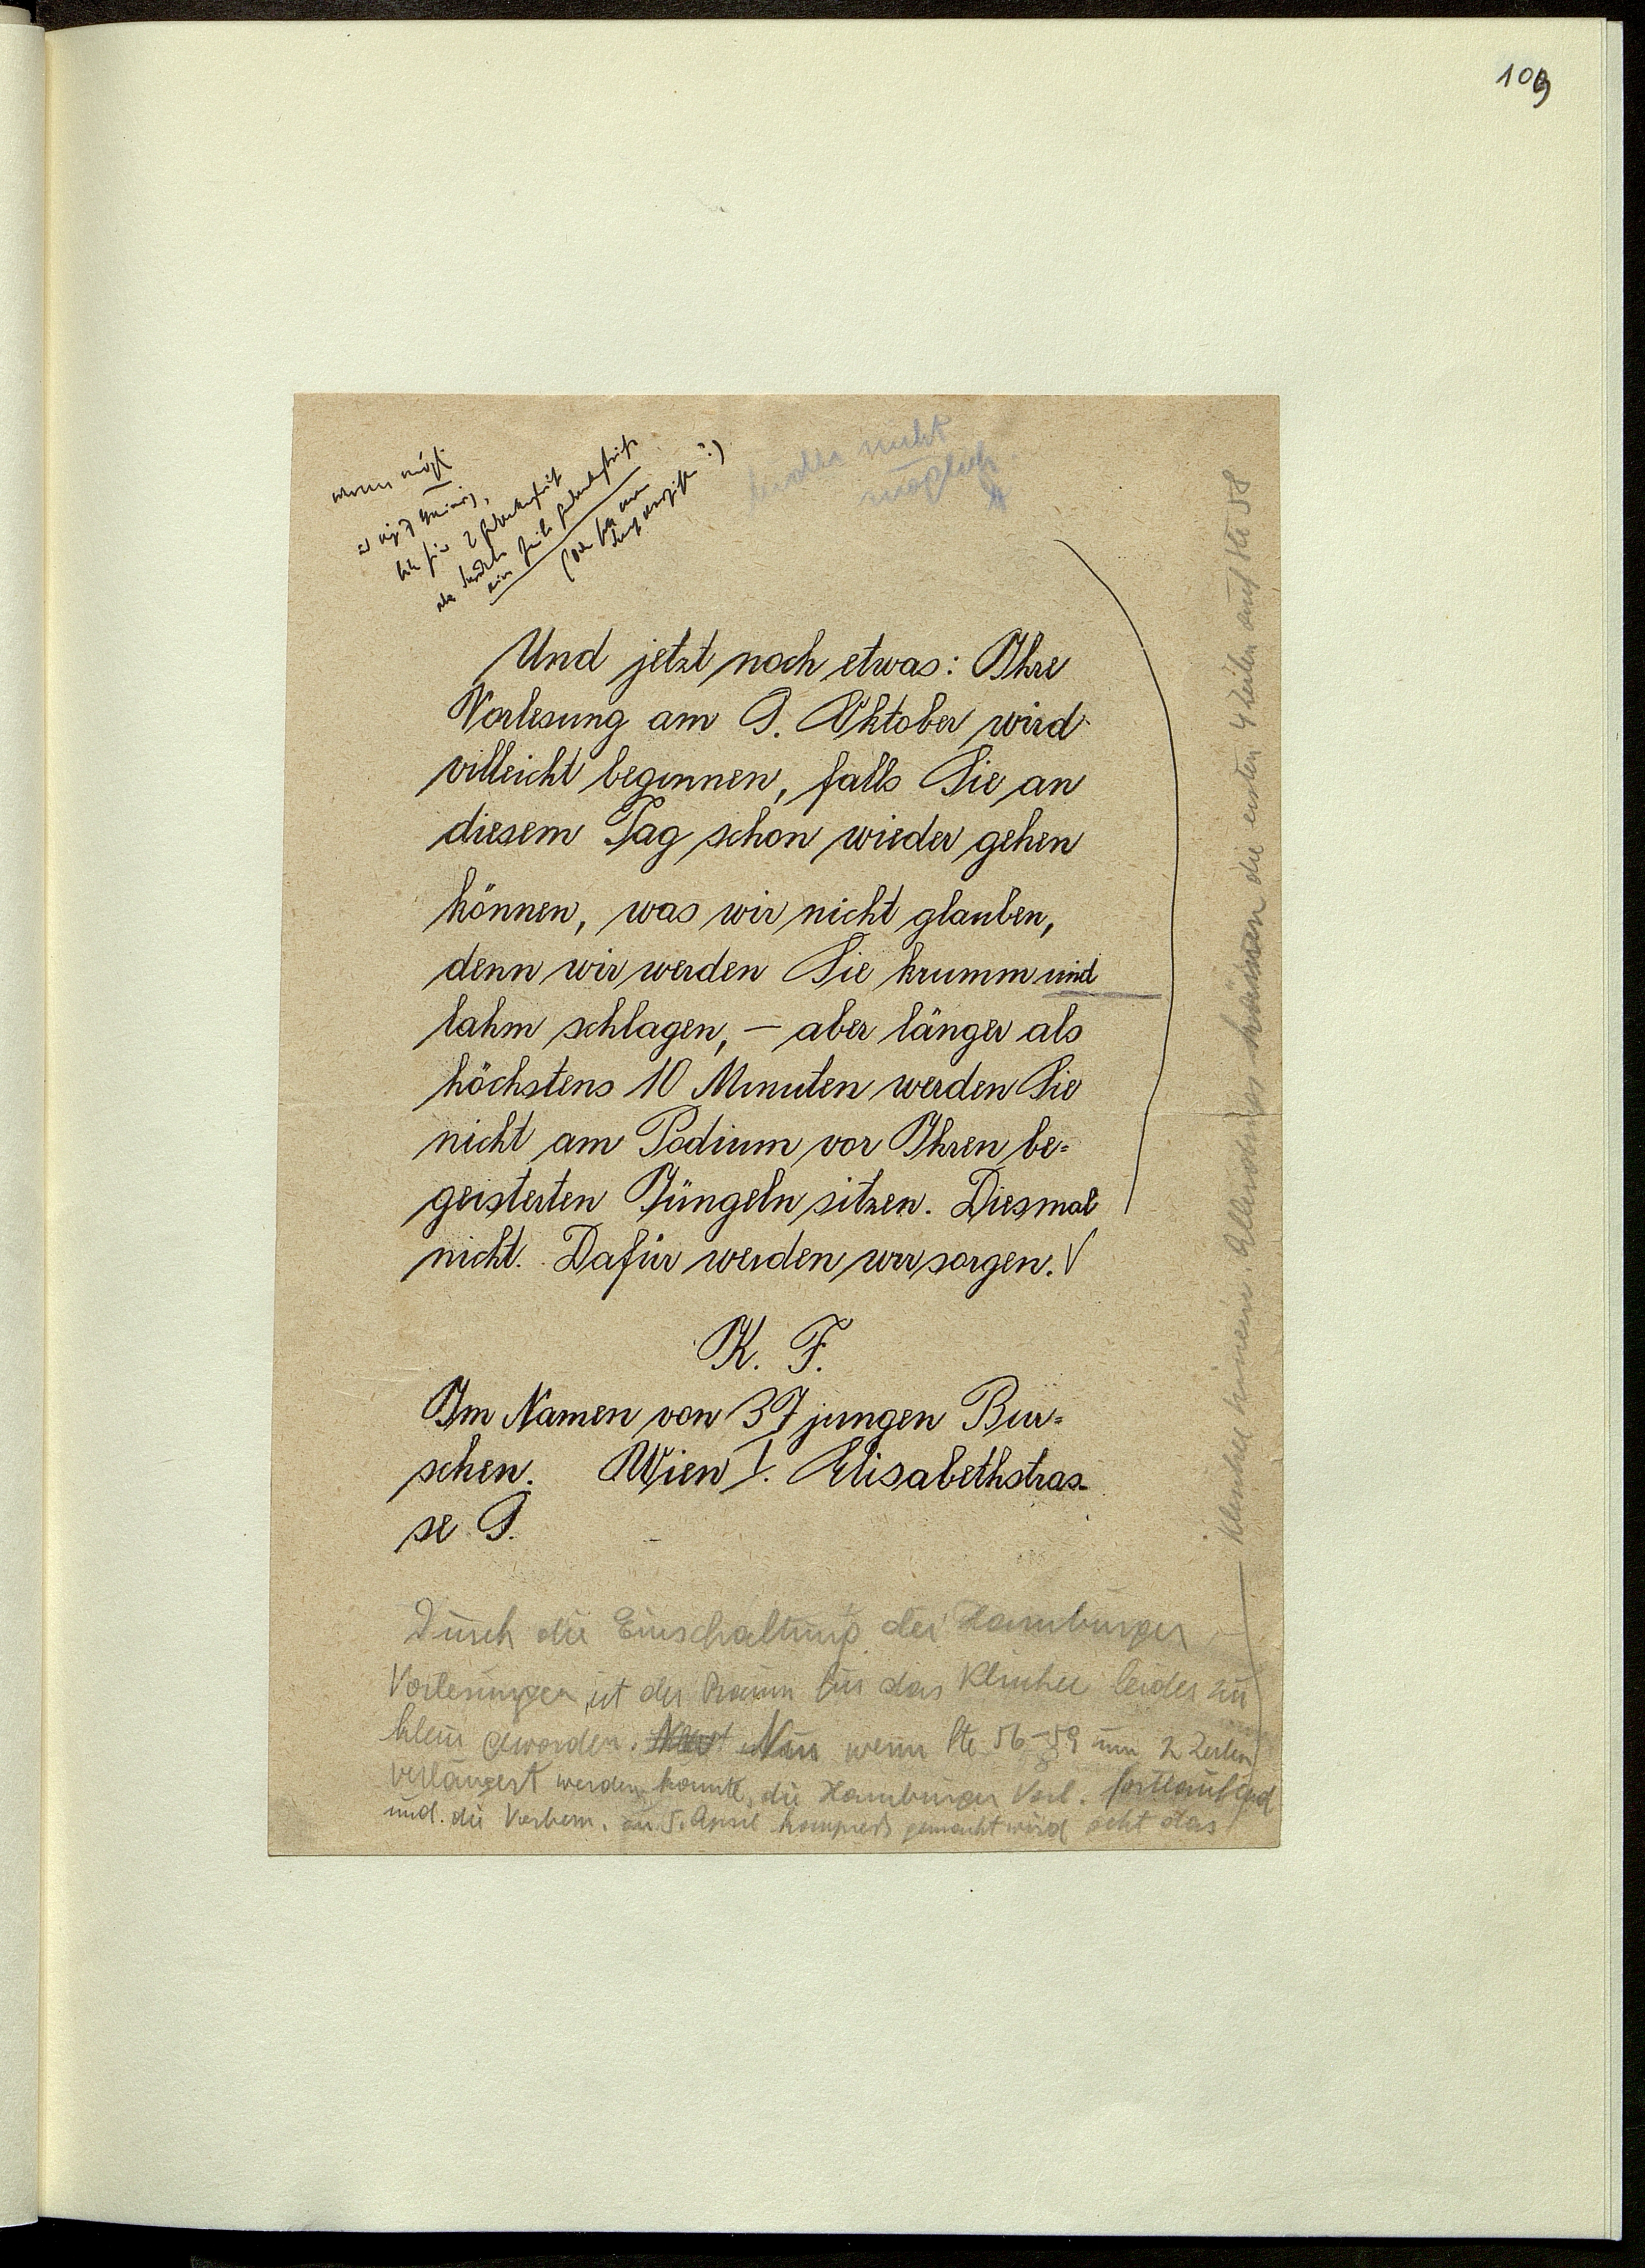 109
wenn mögl
leider nicht
möglich
Und jetzt noch etwas: Ihre
Vorlesung am 9. Oktober wird
villeicht beginnen, falls Sie an
diesem Tag schon wieder gehen
können, was wir nicht glauben,
denn wir werden Sie krumm und
lahm schlagen, — aber länger als
höchstens 10 Minuten werden Sie
nicht am Podium vor Ihren be-
geisterten Jüngeln sitzen. Diesmal
nicht. Dafür werden wir sorgen.
K. F.
Im Namen von 37 jungen Bur-
schen. Wien I. Elisabethstras-
se 9.
Durch die Einschaltung der Hamburger
Vorlesungen ist der Raum für das Klischee leider zu
klein geworden. Nur wenn Ste 56–59 um 2 Zeilen
verlängert werden könnte, die Hamburger Vorl. fortlaufend
und die Vorbem. zu 5. April kompreß gemacht wird geht das
Klischee hinein. Allerdings kommen die ersten 4 Zeilen auf Ste 58